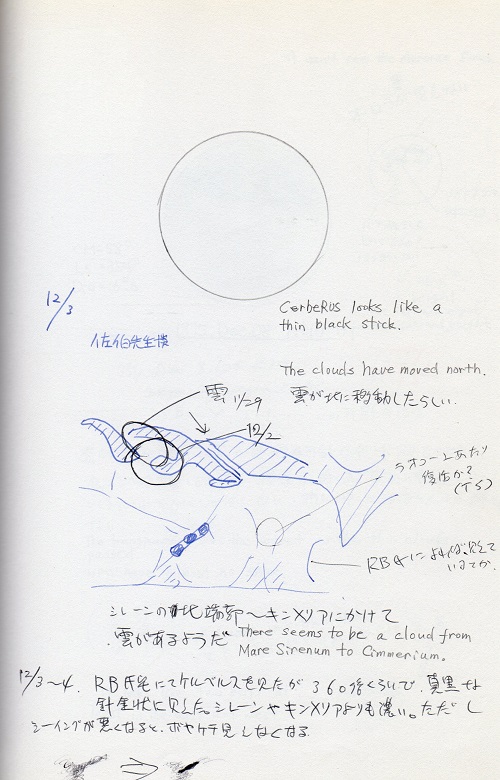 12/3
CerbeRus looks like a
thin black stick.
佐伯先生様
The clouds have moved north.
雲 11/29
雲が北に移動したらしい.
12/2
ラオコーンあたり
復活か?
(TS)
RB氏によれば、見えて
いるとか.
シレーンの北端部~キンメリアにかけて
雲があるようだ
There seems to be a cloud from
Mare Sirenum to Cimmerium.
12/3~4. RB氏宅にてケルベルスを見たが360倍くらいで、真黒な
針金状に見えた。シレーンやキンメリアよりも濃い。ただし
シーイングが悪くなると、ボヤケテ見しなくなる